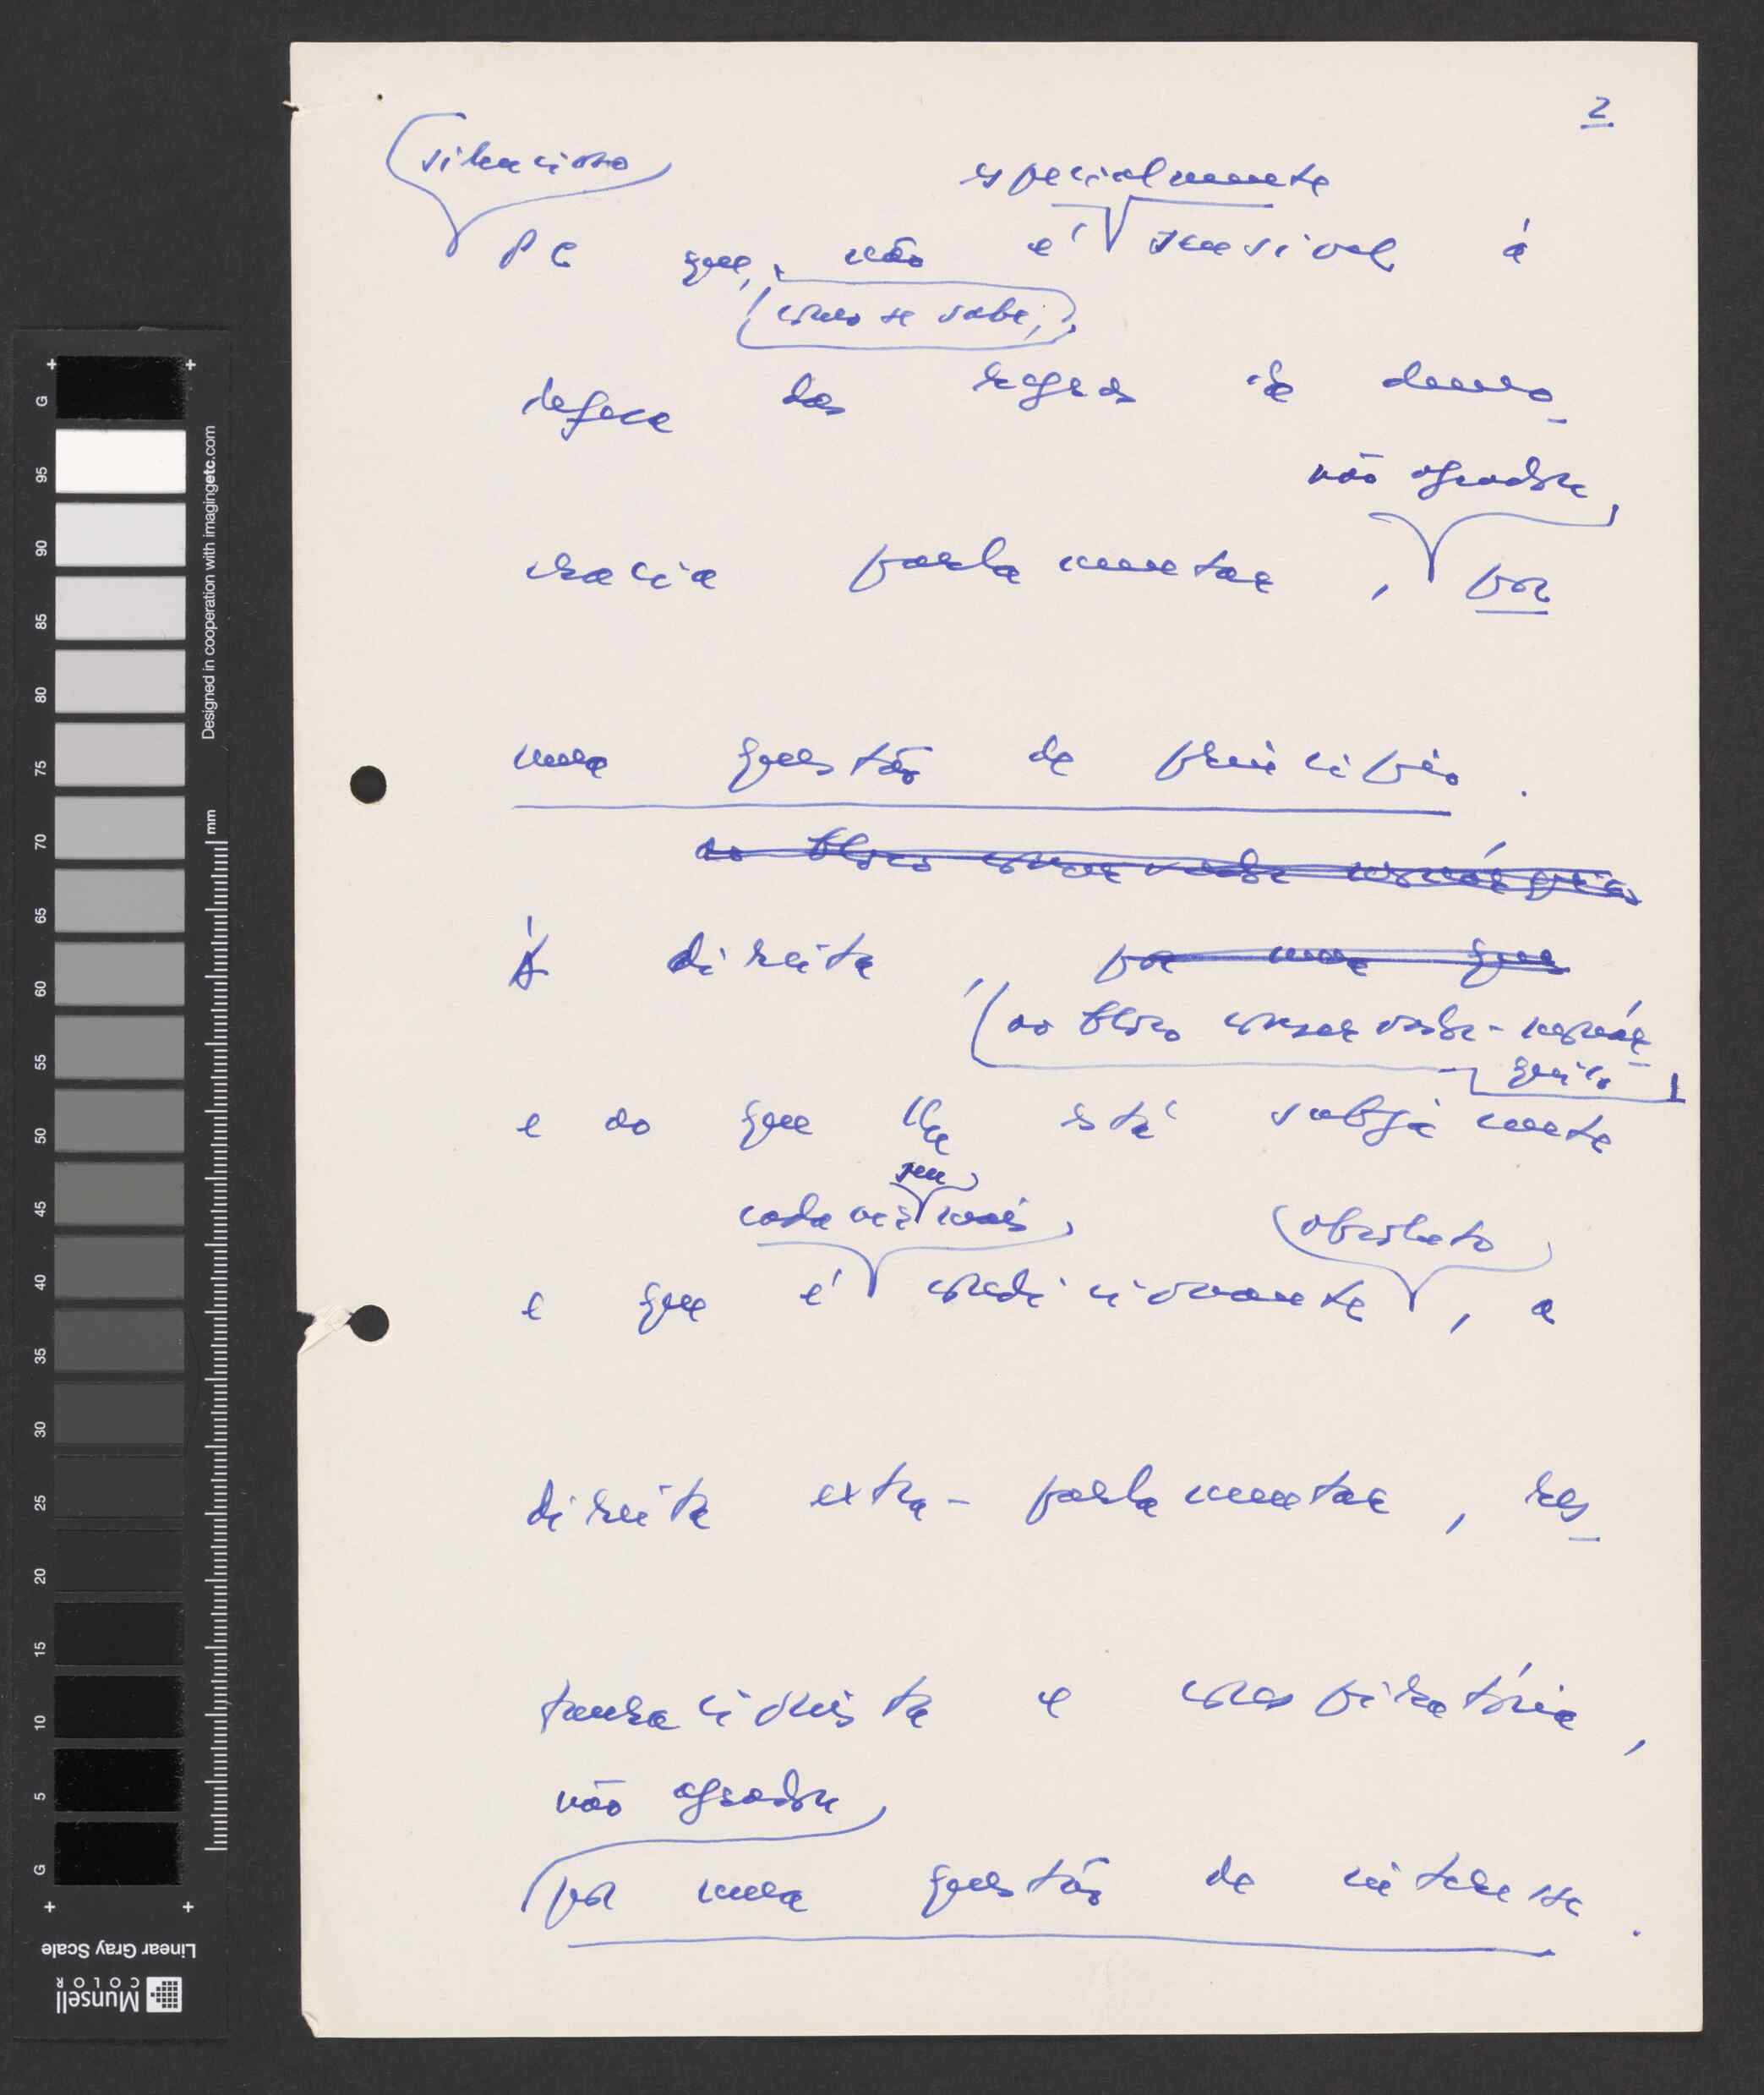 2
silencioso
especialmente
PC que, não é sensível à
como se sabe,
defesa das regras da demo-
não agradou,
cracia parlamentar, por
uma questão de princípio.
ao bloco conservador monárquico
À direita, por uma ques
(ao bloco conservador-monár-
quico
e ao que lhe está subjacente
sem
cada vez mais
(obsoleto)
e que é condicionante, a
direita extra-parlamentar, res-
tauracionista e conspiratória,
não agradou
por uma questão de interesse.
G
95
90
85
80
75
70
65
60
55
50
45
40
35
30
25
20
15
10
5
G
mm
Designed in cooperation with imagingetc.com
Linear Gray Scale
Munsell
COLOR